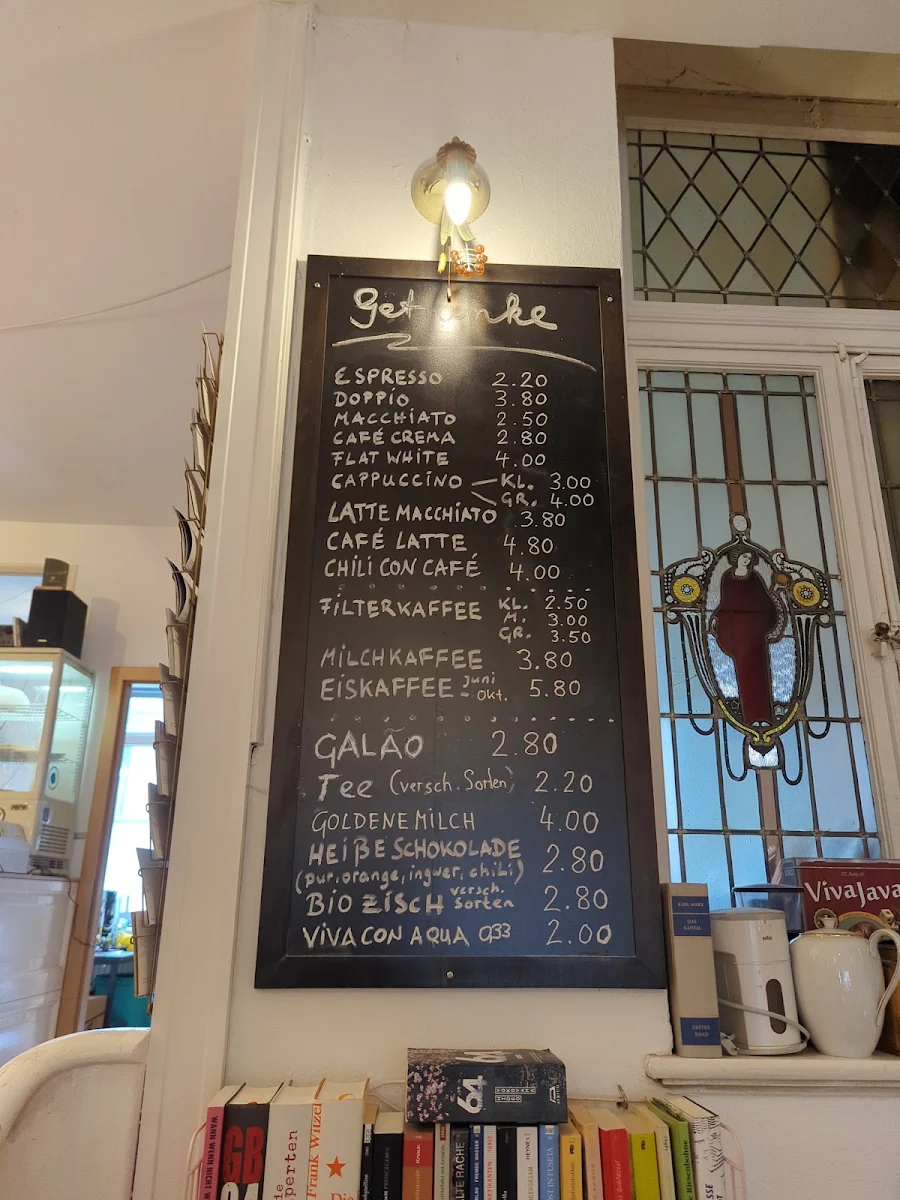 Getränke
ESPRESSO 2.20
DOPPIO 3.80
MACCHIATO 2.50
CAFÉ CREMA 2.80
FLAT WHITE 4.00
CAPPUCCINO KL. 3.00
GR. 4.00
LATTE MACCHIATO 3.80
CAFÉ LATTE 4.80
CHILI CON CAFÉ 4.00
FILTERKAFFEE KL. 2.50
M. 3.00
GR. 3.50
MILCHKAFFEE 3.80
EISKAFFEE - juni - okt. 5.80
GALÃO 2.80
Tee (versch. Sorten) 2.20
GOLDENE MILCH 4.00
HEIßE SCHOKOLADE 2.80
(pur, orange, ingwer, chili)
BiO ZiSCH versch. Sorten 2.80
VIVA CON AQUA 0,33 2.00
VivaJava
KARL MARX
DAS KAPITAL
ERSTER BAND
64
Frank Witzel
HEYNE